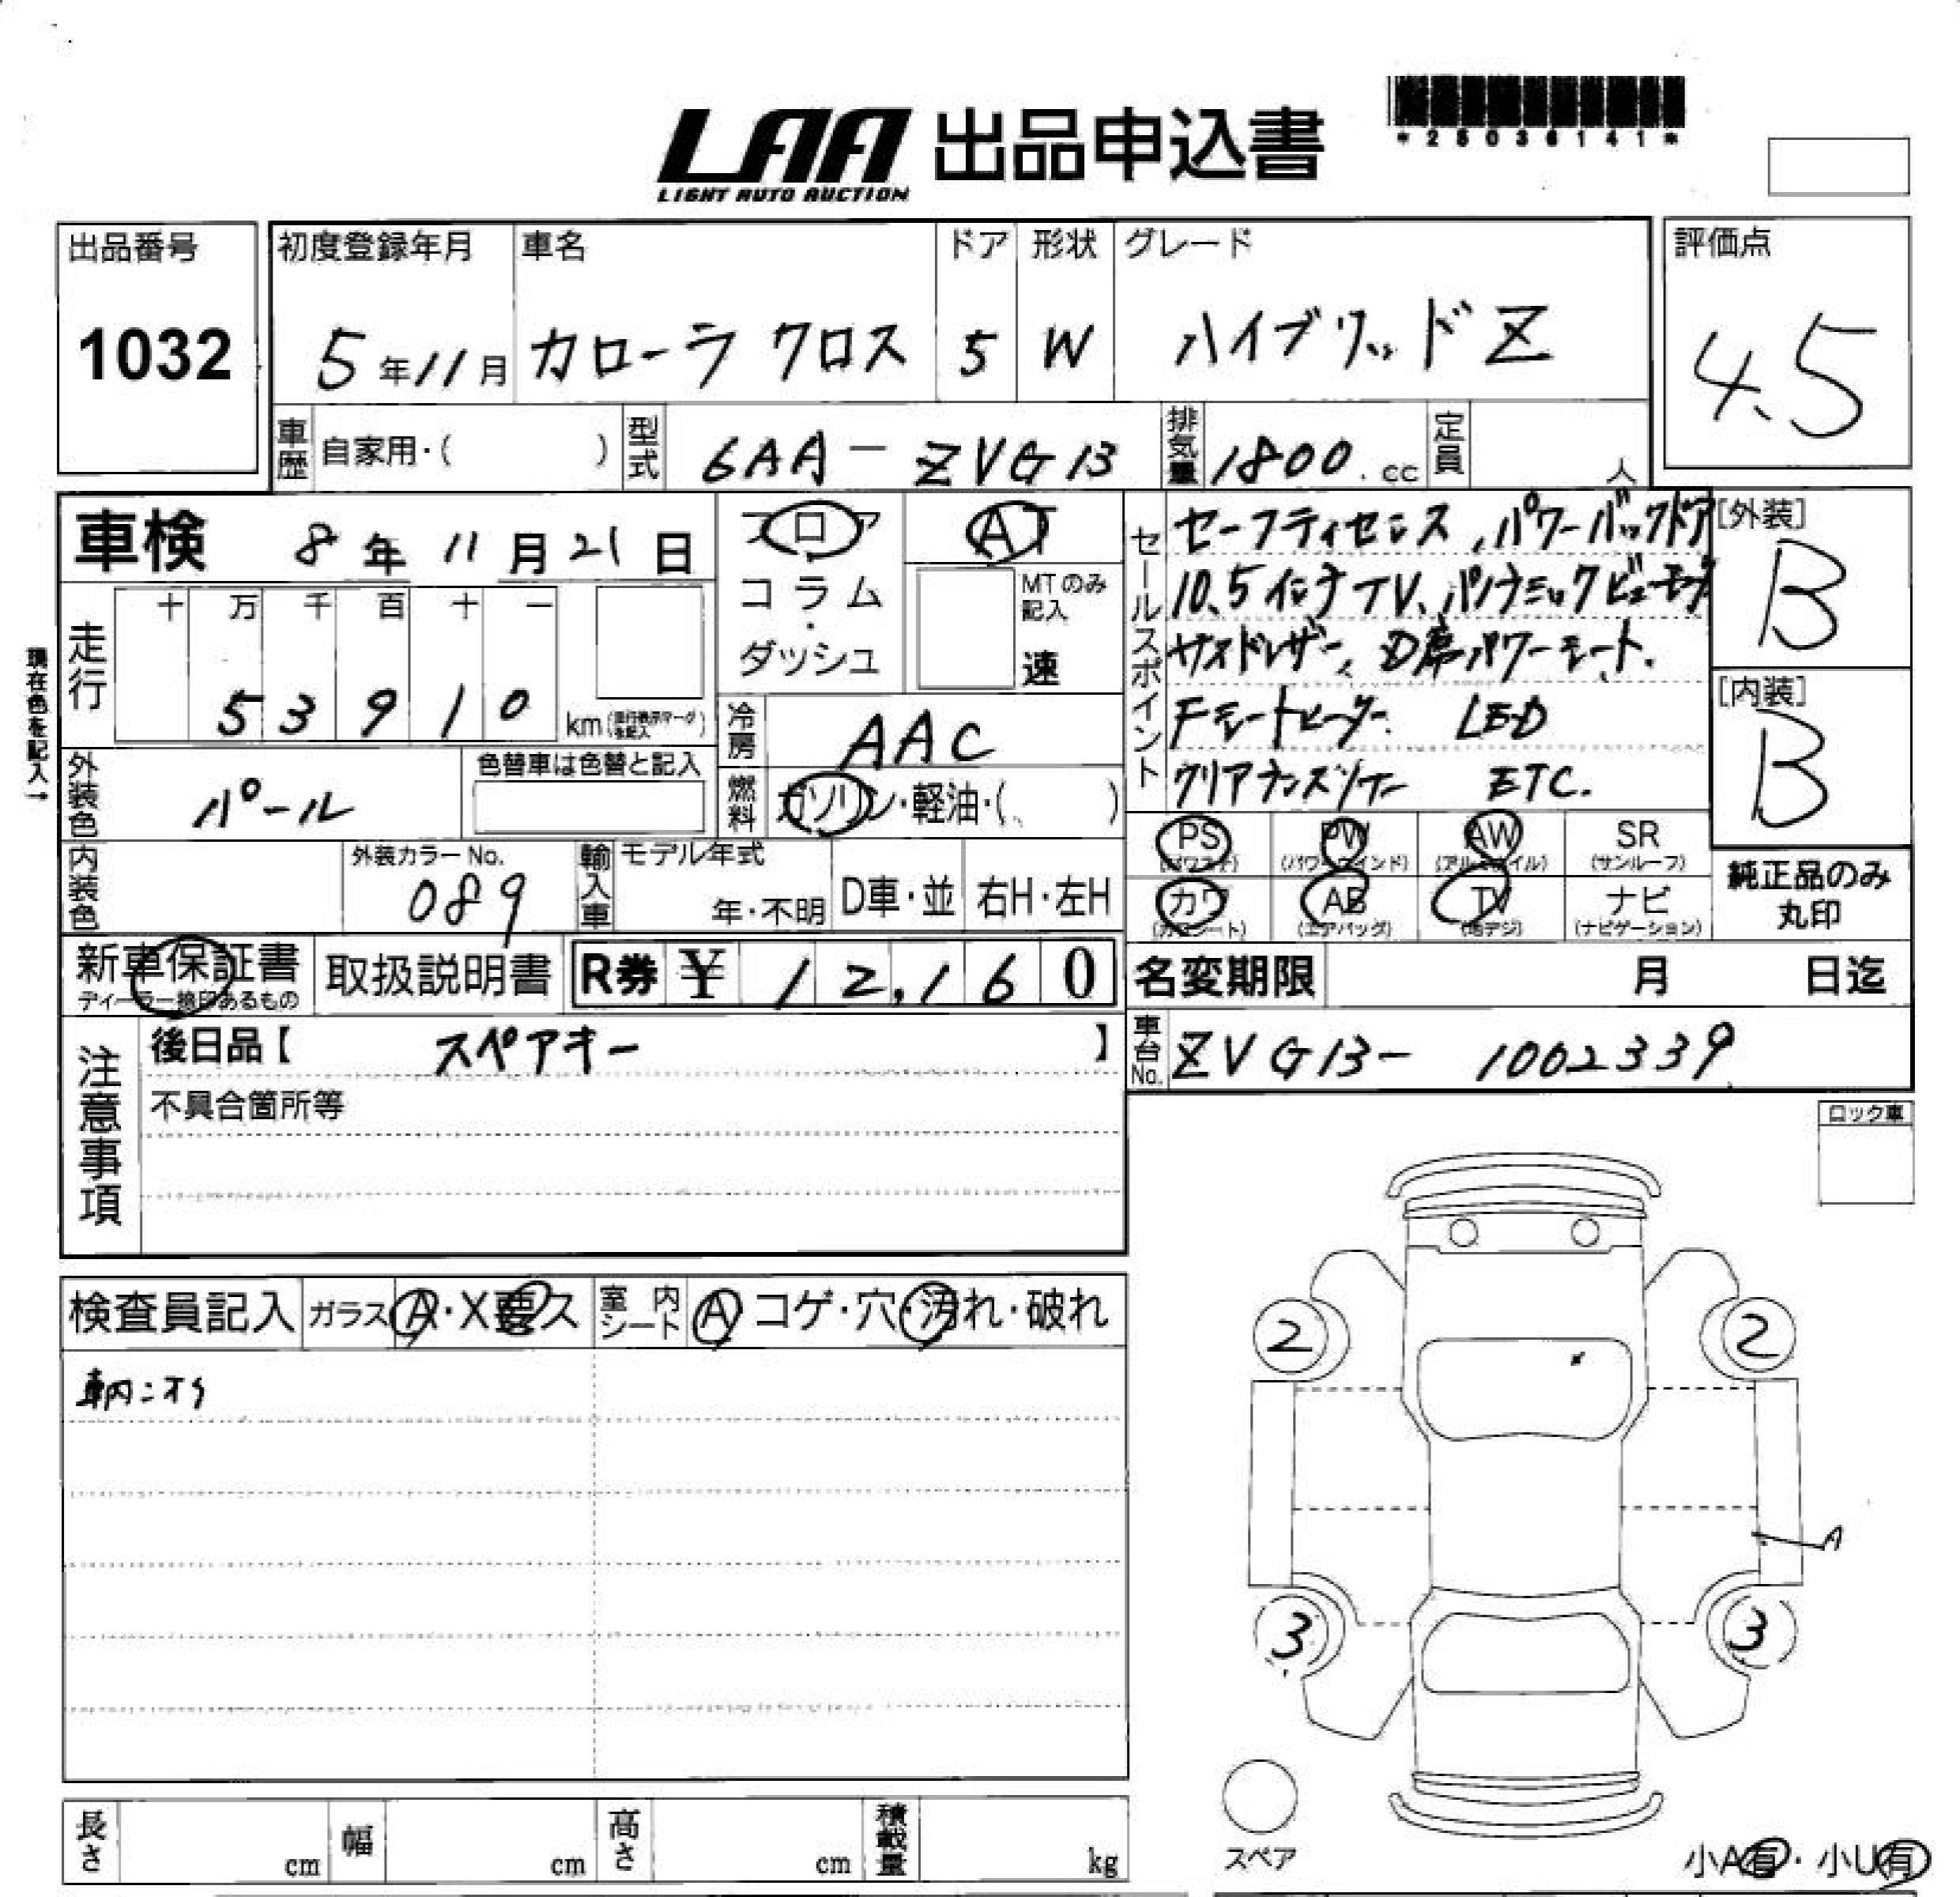 *25036141*
LAA 出品申込書
LIGHT AUTO AUCTION
出品番号 初度登録年月 車名 ドア 形状 グレード 評価点
1032 5年11月 カローラ クロス 5 W ハイブリッド Z 4.5
車歴 自家用・( ) 型式 6AA-ZVG13 排気量 1800.cc 定員 人
車検 8年11月21日 フロア AT
コラム・ MTのみ記入
ダッシュ 速
セールスポイント
セーフティセンス、パワーバックドア
10.5インチTV、パノラミックビューモニタ
サスドレザー、D席パワーシート、
Fシートヒーター LED
クリアランスソナー ETC.
[外装]
B
[内装]
B
現在色を記入→
走行 十万千百十一
53910 km
冷房 AAC
外装色 パール 色替車は色替と記入
燃料 ガソリン・軽油・( )
PS (パワステ) PW (パワーウインド) AW (アルミホイル) SR (サンルーフ)
カワ (カワシート) AB (エアバッグ) TV (地デジ) ナビ (ナビゲーション)
純正品のみ
丸印
内装色 外装カラーNo. 089 輸入車 モデル年式 年・不明 D車・並 右H・左H
新車保証書 取扱説明書 R券 ¥12,160 名変期限 月 日迄
ディーラー捺印あるもの
注意事項
後日品【 スペアキー 】
車台No. ZVG13- 1002339
不具合箇所等
ロック車
検査員記入 ガラス A・X要ス 室内シート A コゲ・穴・汚れ・破れ
車内ニオイ
2 2
A
3 3
スペア
小A有・小U有
長さ cm 幅 cm 高さ cm 積載量 kg